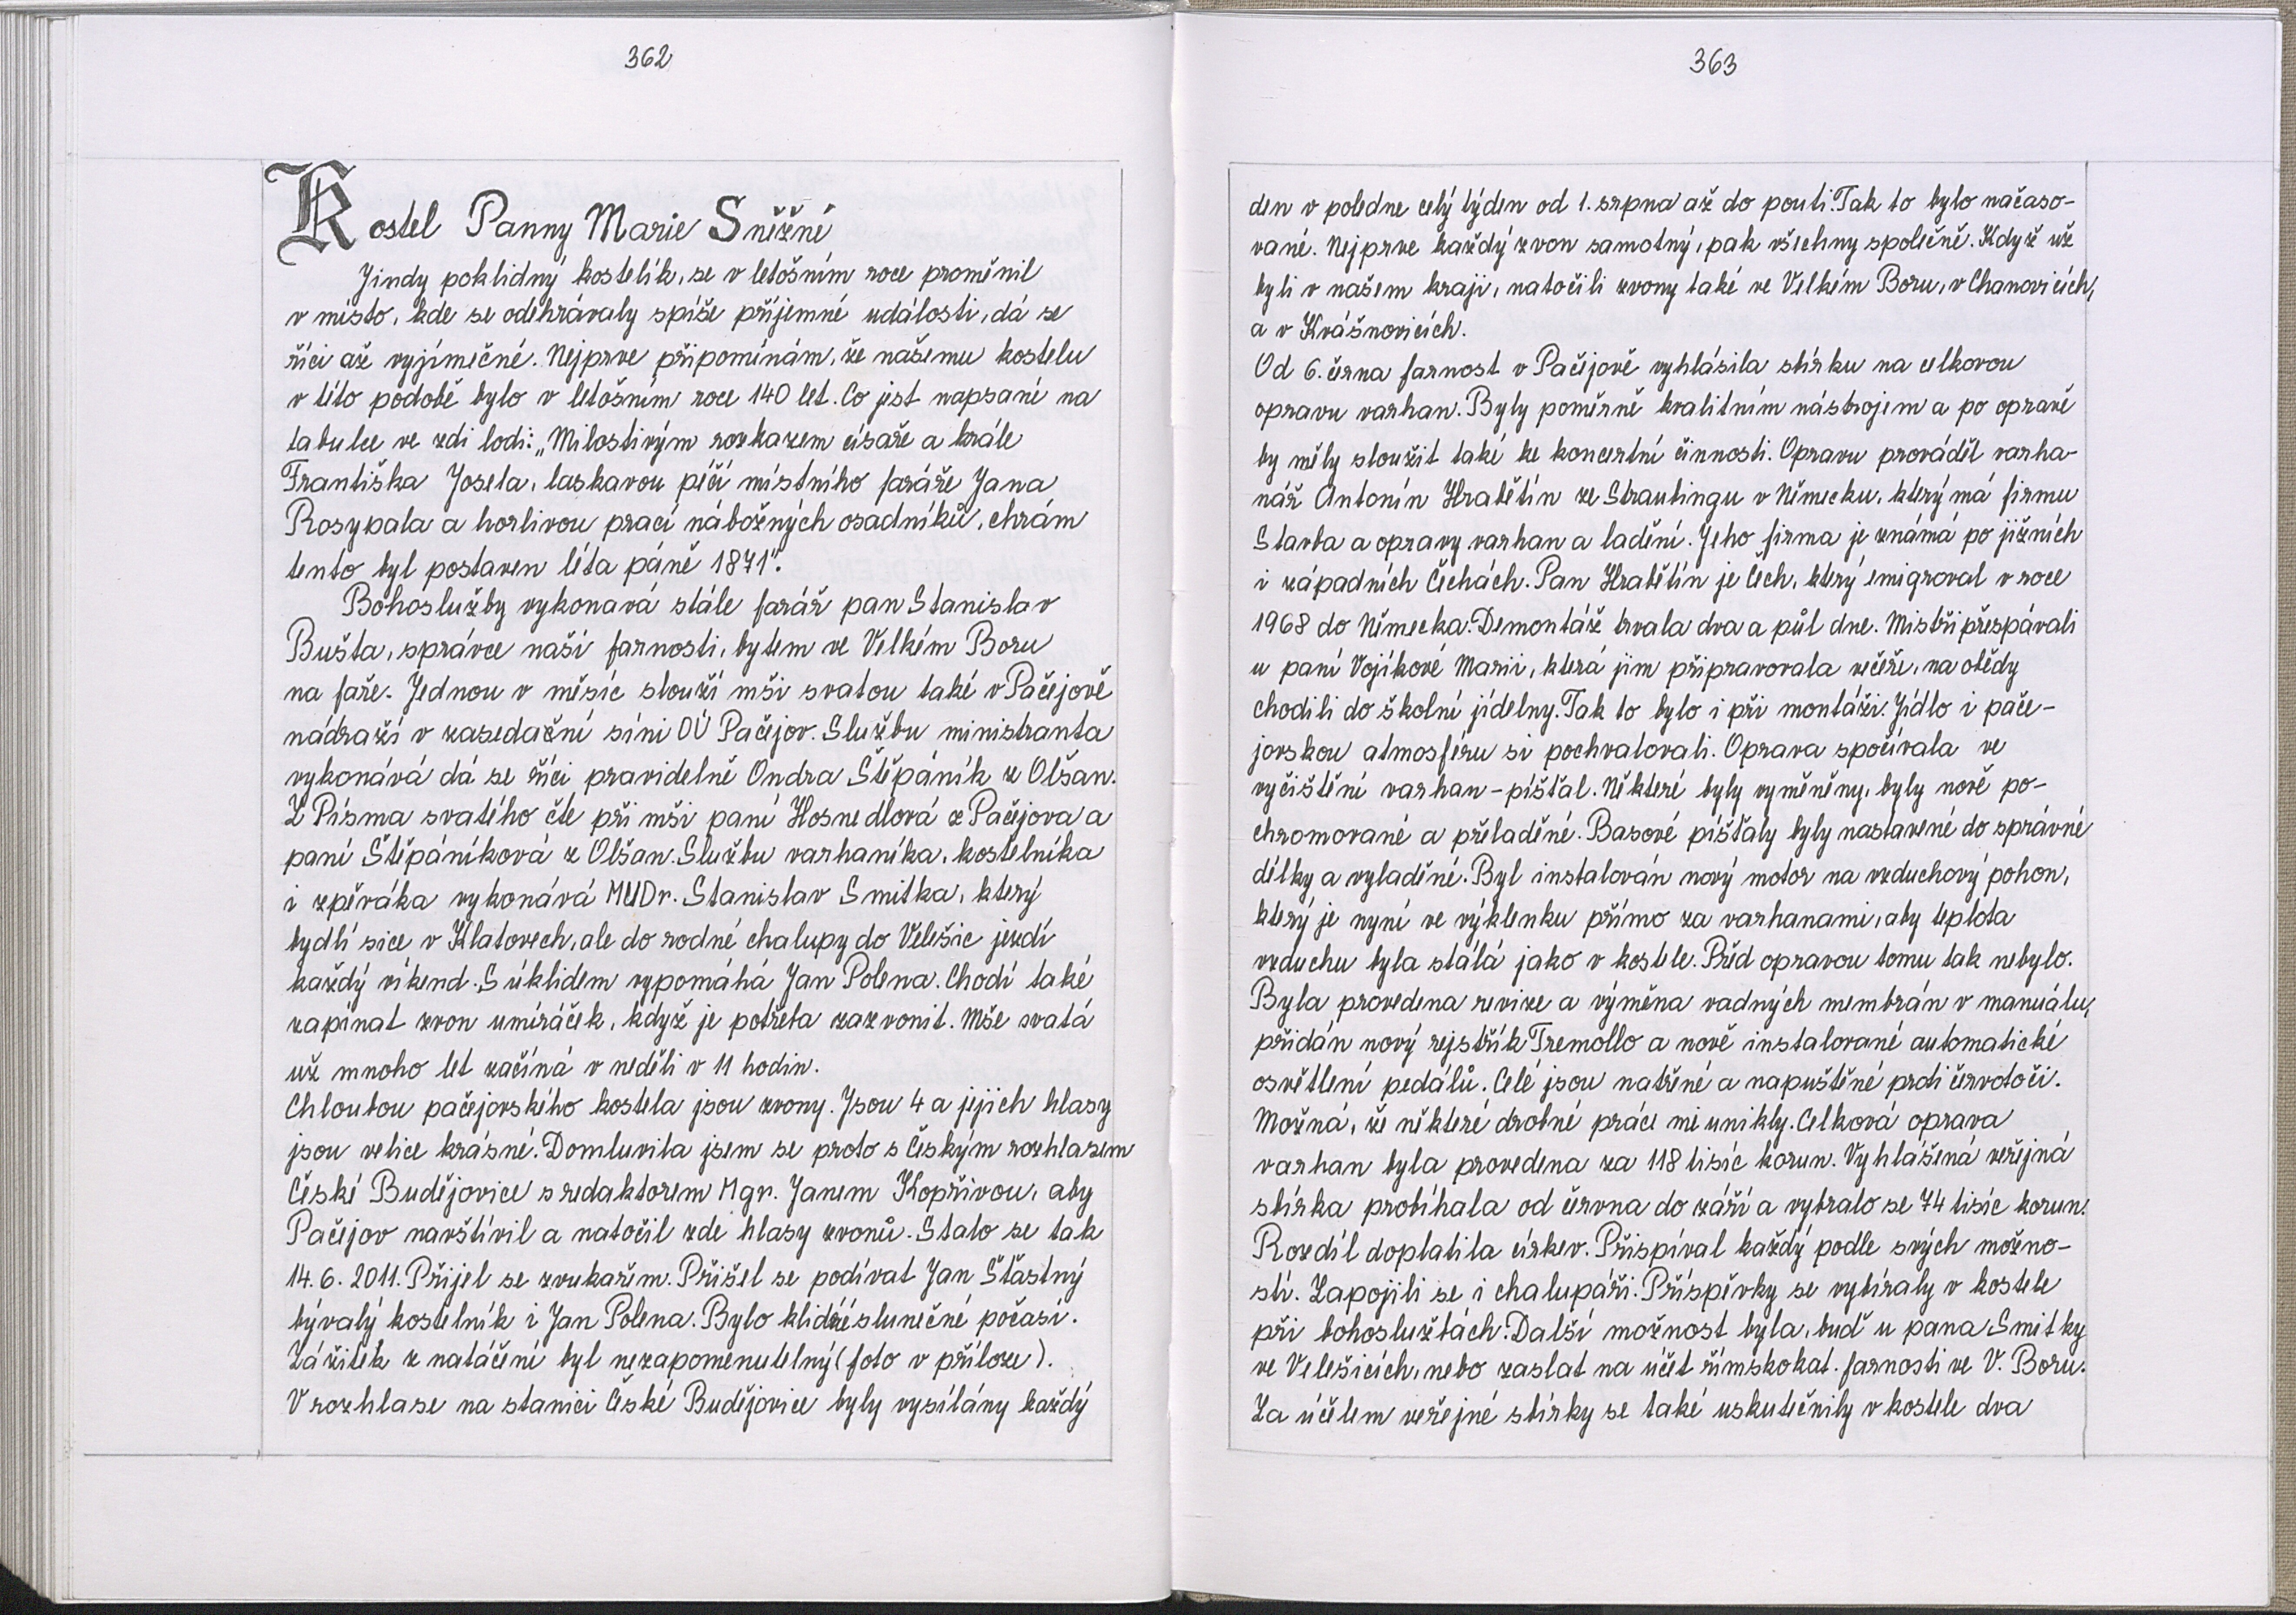 362
Kostel Panny Marie Sněžné
Jindy poklidný kostelík, se v letošním roce proměnil
v místo, kde se odehrávaly spíše příjemné události, dá se
říci až vyjímečné. Nejprve připomínám, že našemu kostelu
v této podobě bylo v letošním roce 140 let. Co jest napsané na
tabulce ve zdi lodi: „Milostivým rozkazem císaře a krále
Františka Josefa, laskavou péčí místního faráře Jana
Rosypala a horlivou prací nábožných osadníků, chrám
tento byl postaven léta páně 1871".
Bohoslužby vykonavá stále farář pan Stanislav
Bušta, správce naší farnosti, bytem ve Velkém Boru
na faře. Jednou v měsíc slouží mši svatou také v Pačejově
nádraží v zasedační síni OÚ Pačejov. Službu ministranta
vykonává dá se říci pravidelně Ondra Štěpáník z Olšan.
Z Písma svatého čte při mši paní Hosnedlová z Pačejova a
paní Štěpáníková z Olšan. Službu varhaníka, kostelníka
i zpěváka vykonává MUDr. Stanislav Smitka, který
bydlí sice v Klatovech, ale do rodné chalupy do Velešic jezdí
každý víkend. S úklidem vypomáhá Jan Polena. Chodí také
zapínat zvon umíráček, když je potřeba zazvonit. Mše svatá
už mnoho let začíná v neděli v 11 hodin.
Chloubou pačejovského kostela jsou zvony. Jsou 4 a jejich hlasy
jsou velice krásné. Domluvila jsem se proto s Českým rozhlasem
České Budějovice s redaktorem Mgr. Janem Kopřivou, aby
Pačejov navštívil a natočil zde hlasy zvonů. Stalo se tak
14. 6. 2011. Přijel se zvukařem. Přišel se podívat Jan Šťastný
bývalý kostelník i Jan Polena. Bylo klidné slunečné počasí.
Zážitek z natáčení byl nezapomenutelný (foto v příloze).
V rozhlase na stanici České Budějovice byly vysílány každý
363
den v poledne celý týden od 1. srpna až do pouti. Tak to bylo načaso-
vané. Nejprve každý zvon samotný, pak všechny společně. Když už
byli v našem kraji, natočili zvony také ve Velkém Boru, v Chanovicích,
a v Kvášnovicích.
Od 6. černa farnost v Pačejově vyhlásila sbírku na celkovou
opravu varhan. Byly poměrně kvalitním nástrojem a po opravě
by měly sloužit také ke koncertní činnosti. Opravu prováděl varha-
nář Antonín Hrabětín ze Straubingu v Německu, který má firmu
Stavba a opravy varhan a ladění. Jeho firma je známá po jižních
i západních Čechách. Pan Hrabětín je Čech, který emigroval v roce
1968 do Německa. Demontáž trvala dva a půl dne. Mistři přespávali
u paní Vojíkové Marii, která jim připravovala večeře, na obědy
chodili do školní jídelny. Tak to bylo i při montáži. Jídlo i pače-
jovskou atmosféru si pochvalovali. Oprava spočívala ve
vyčištění varhan - píšťal. Některé byly vyměněny, byly nově po-
chromované a přeladěné. Basové píšťaly byly nastavené do správné
délky a vyladěné. Byl instalován nový motor na vzduchový pohon,
který je nyní ve výklenku přímo za varhanami, aby teplota
vzduchu byla stálá jako v kostele. Před opravou tomu tak nebylo.
Byla provedena revize a výměna vadných membrán v manuálu,
přidán nový rejstřík Tremollo a nově instalované automatické
osvětlení pedálů. Celé jsou natřené a napuštěné prdi červotoči.
Možná, že některé drobné práce mi unikly. Celková oprava
varhan byla provedena za 118 tisíc korun. Vyhlášená veřejná
sbírka probíhala od června do září a vybralo se 74 tisíc korun.
Rozdíl doplatila církev. Přispíval každý podle svých možno-
stí. Zapojili se i chalupáři. Příspěvky se vybíraly v kostele
při bohoslužbách. Další možnost byla, buď u pana Smitky
ve Velešicích, nebo zaslat na účet římskokat. farnosti ve V. Boru.
Za účelem veřejné sbírky se také uskutečnily v kostele dva